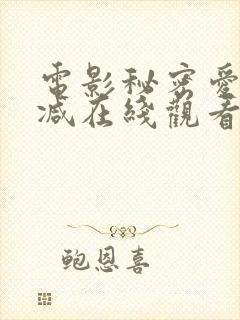 電影秘密愛
減在綫觀看
鮑恩喜